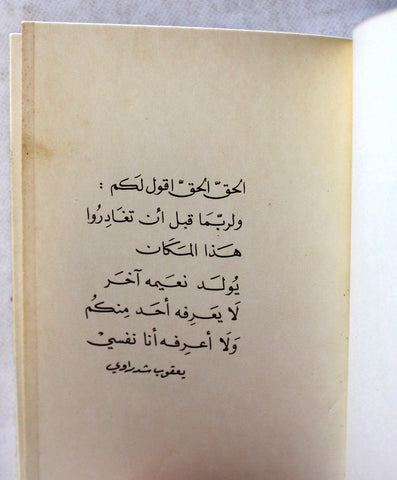 الحقّ الحقّ اقول لَكم :
ولربّمَا قبل أن تغادِرُوا
هَذا المَكَان
يُولَد نعَيمه آخَر
لَا يَعرِفه أحَد مِنكُم
وَلَا أعرِفه أنا نفسيْ
يعقوب شدراوي